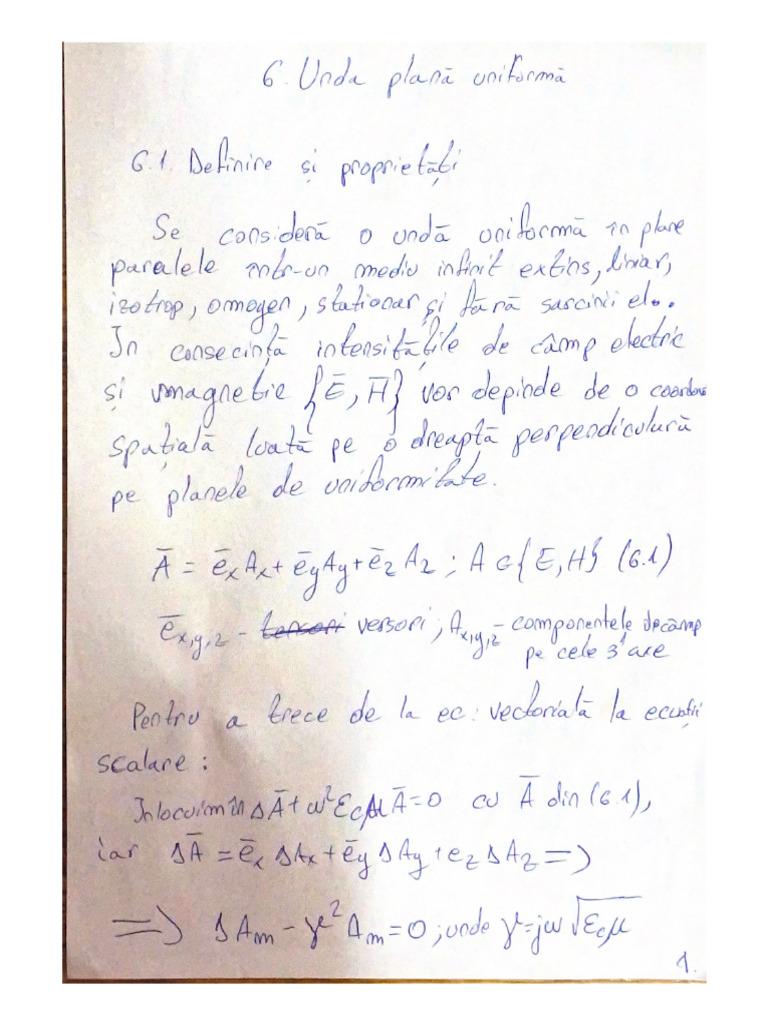 6. Unda plană uniformă
6.1. Definire și proprietăți
Se consideră o undă uniformă în plane
paralele într-un mediu infinit extins, liniar,
izotrop, omogen, staționar și fără sarcinii el..
În consecință intensitățile de câmp electric
și magnetic {Ē, H̄} vor depinde de o coordon
spațială luată pe o dreaptă perpendiculură
pe planele de uniformitate.
Ā = ēₓAₓ + ēyAy + ēzAz ; A ∈ {E, H} (6.1)
ēx,y,z - tensori versori ; Ax,y,z - componentele de câmp
pe cele 3 axe
Pentru a trece de la ec. vectorială la ecuații
scalare :
Înlocuim în ΔĀ + ω²εcμĀ = 0 cu Ā din (6.1),
iar ΔĀ = ēxΔAx + ēyΔAy + ezΔAz =>
=> ΔAm - γ²Am = 0 ; unde γ = jω√εcμ
1.